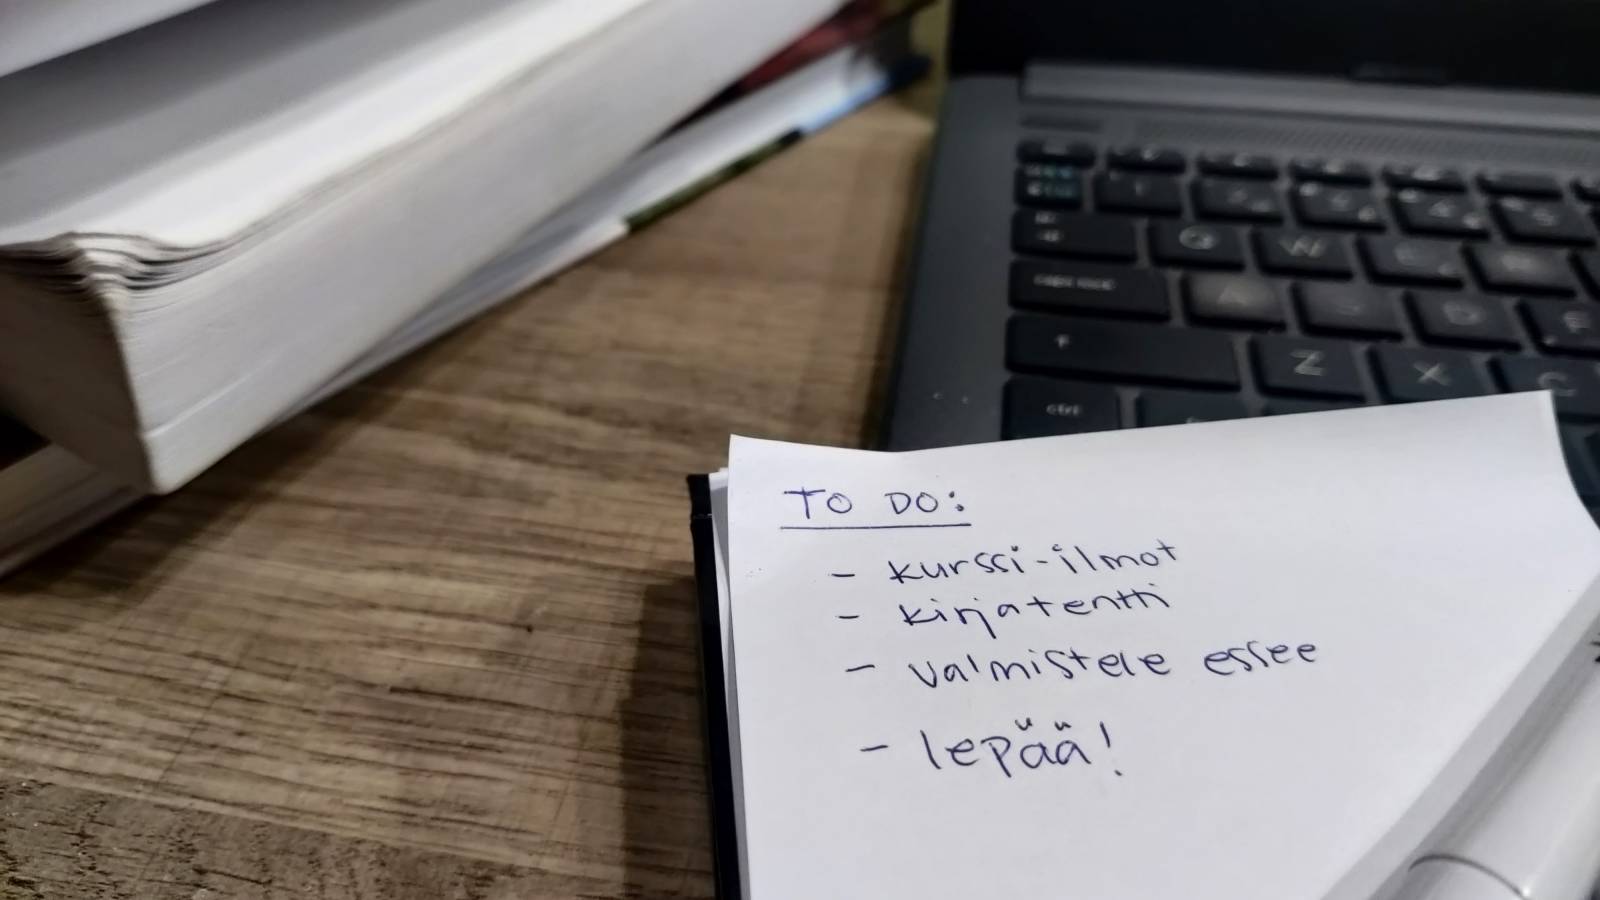 TO DO:
- kurssi-ilmot
- kirjatentti
- valmistele essee
- lepää!
Q W E
A S D F
Z X C
ctrl